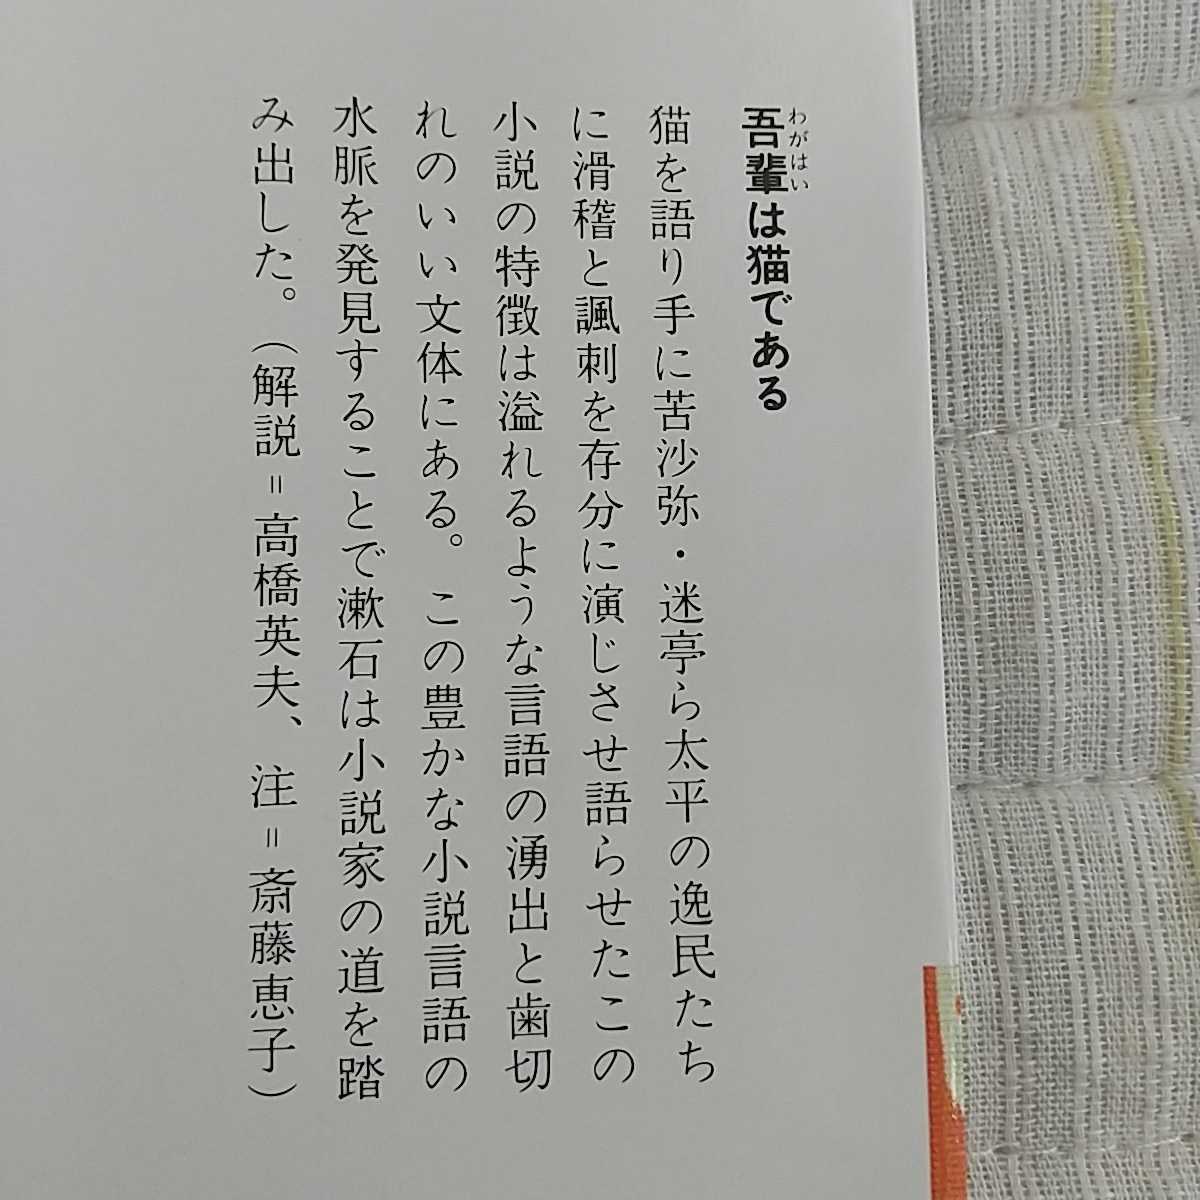 吾輩は猫である
わがはい
猫を語り手に苦沙弥・迷亭ら太平の逸民たち
に滑稽と諷刺を存分に演じさせ語らせたこの
小説の特徴は溢れるような言語の湧出と歯切
れのいい文体にある。この豊かな小説言語の
水脈を発見することで漱石は小説家の道を踏
み出した。（解説＝高橋英夫、注＝斎藤恵子）